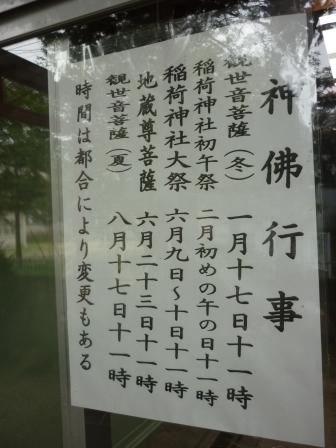 神佛行事
観世音菩薩（冬） 一月十七日十一時
稲荷神社初午祭 二月初めの午の日十一時
稲荷神社大祭 六月九日～十日十一時
地蔵尊菩薩 六月二十三日十一時
観世音菩薩（夏） 八月十七日十一時
時間は都合により変更もある